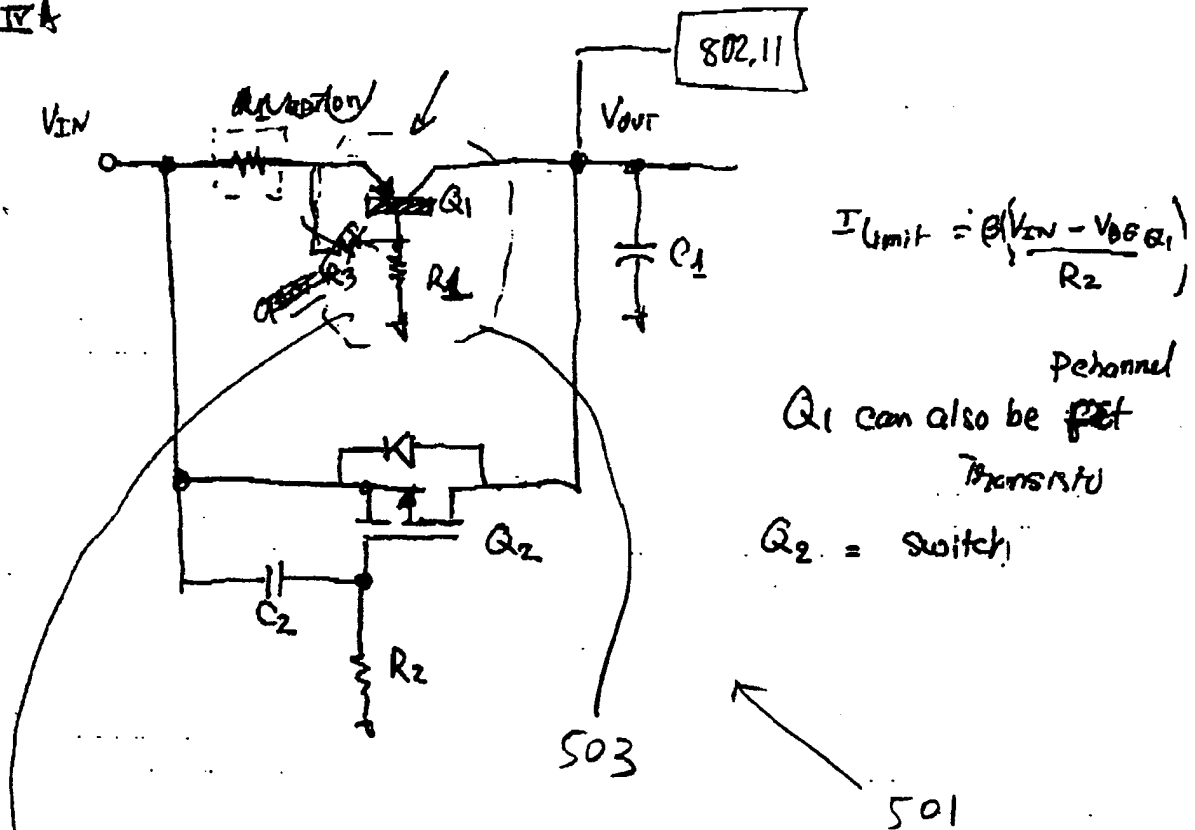 IV A
802.11
VIN
VOUT
Q1
R3
R1
C1
I Limit = β(VIN - VBE Q1)
R2
Pchannel
Q1 can also be fet
Transisto
Q2 = Switch
Q2
C2
R2
503
501